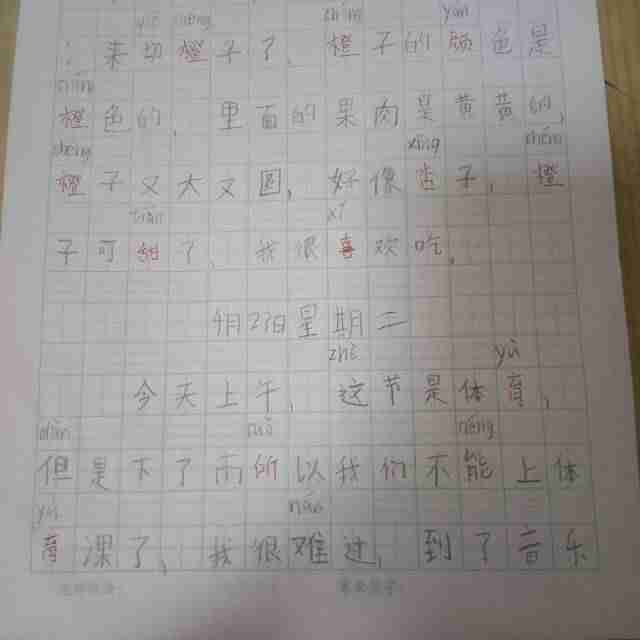 yiē chéng zhéng yán
来切橙子了，橙子的颜色是
橙色的，里面的果肉是黄黄的，
xìng
橙子又大又圆，好像杏子，橙
tián xǐ
子可甜了，我很喜欢吃。
4月27日星期二
zhè yù
今天上午，这节是体育，
dàn suǒ néng
但是下了雨所以我们不能上体
yù nán
育课了，我很难过，到了音乐